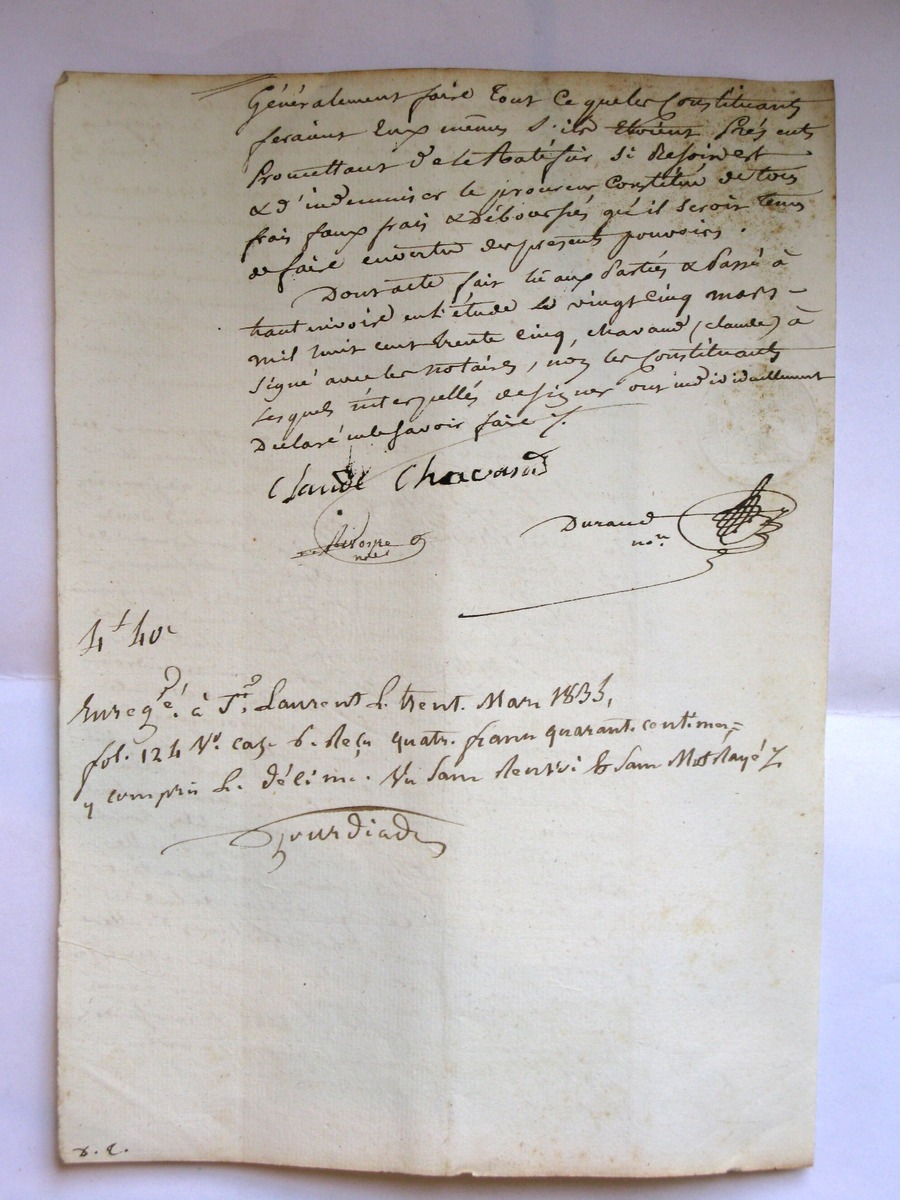 Généralement faire tout ce que les Constituants
feraient Eux mêmes s'ils Etoient Présents
Promettant de le Ratifier si Besoin est
& d'indemniser le procureur Constitué de tous
frais faux frais & Déboursés qu'il seroit tenu
de faire en vertu des présents pouvoirs.
Dont acte fait lu aux Parties & Passé à
hauterivoire en l'étude le vingt cinq mars
mil huit cent trente cinq, chavand (claude) à
signé avec les notaires, non les Constituants
Lesquels interpellés de signer ont individuellement
Déclaré ne le savoir faire
Claude Chavand
Durand
nore
4f 40c
Enregé. à St. Laurent le trent. Mars 1835,
fol. 124 Vo. cas. 6. Reçu quatr. francs quarant. centimes,
y compris le décime. Vu sans Renvoi & sans Mot Rayé
Gourdiad